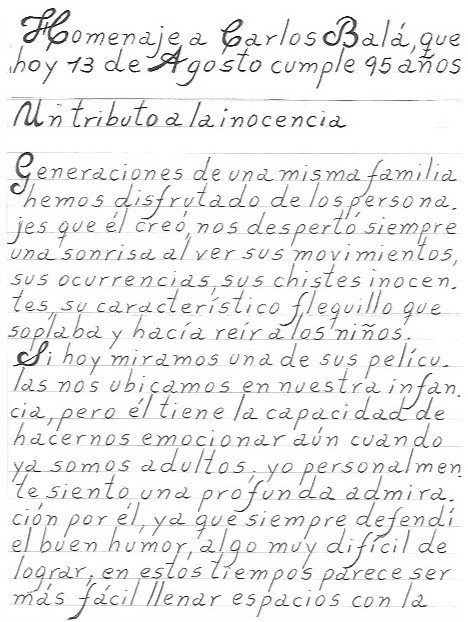 Homenaje a Carlos Balá, que
hoy 13 de Agosto cumple 95 años
Un tributo a la inocencia
Generaciones de una misma familia
hemos disfrutado de los persona.
jes que él creó, nos despertó siempre
una sonrisa al ver sus movimientos,
sus ocurrencias, sus chistes inocen.
tes, su característico flequillo que
soplaba y hacía reír a los niños.
Si hoy miramos una de sus pelícu.
las nos ubicamos en nuestra infan.
cia, pero él tiene la capacidad de
hacernos emocionar aún cuando
ya somos adultos; yo personalmen
te siento una profunda admira.
ción por él, ya que siempre defendí
el buen humor, algo muy difícil de
lograr; en estos tiempos parece ser
más fácil llenar espacios con la